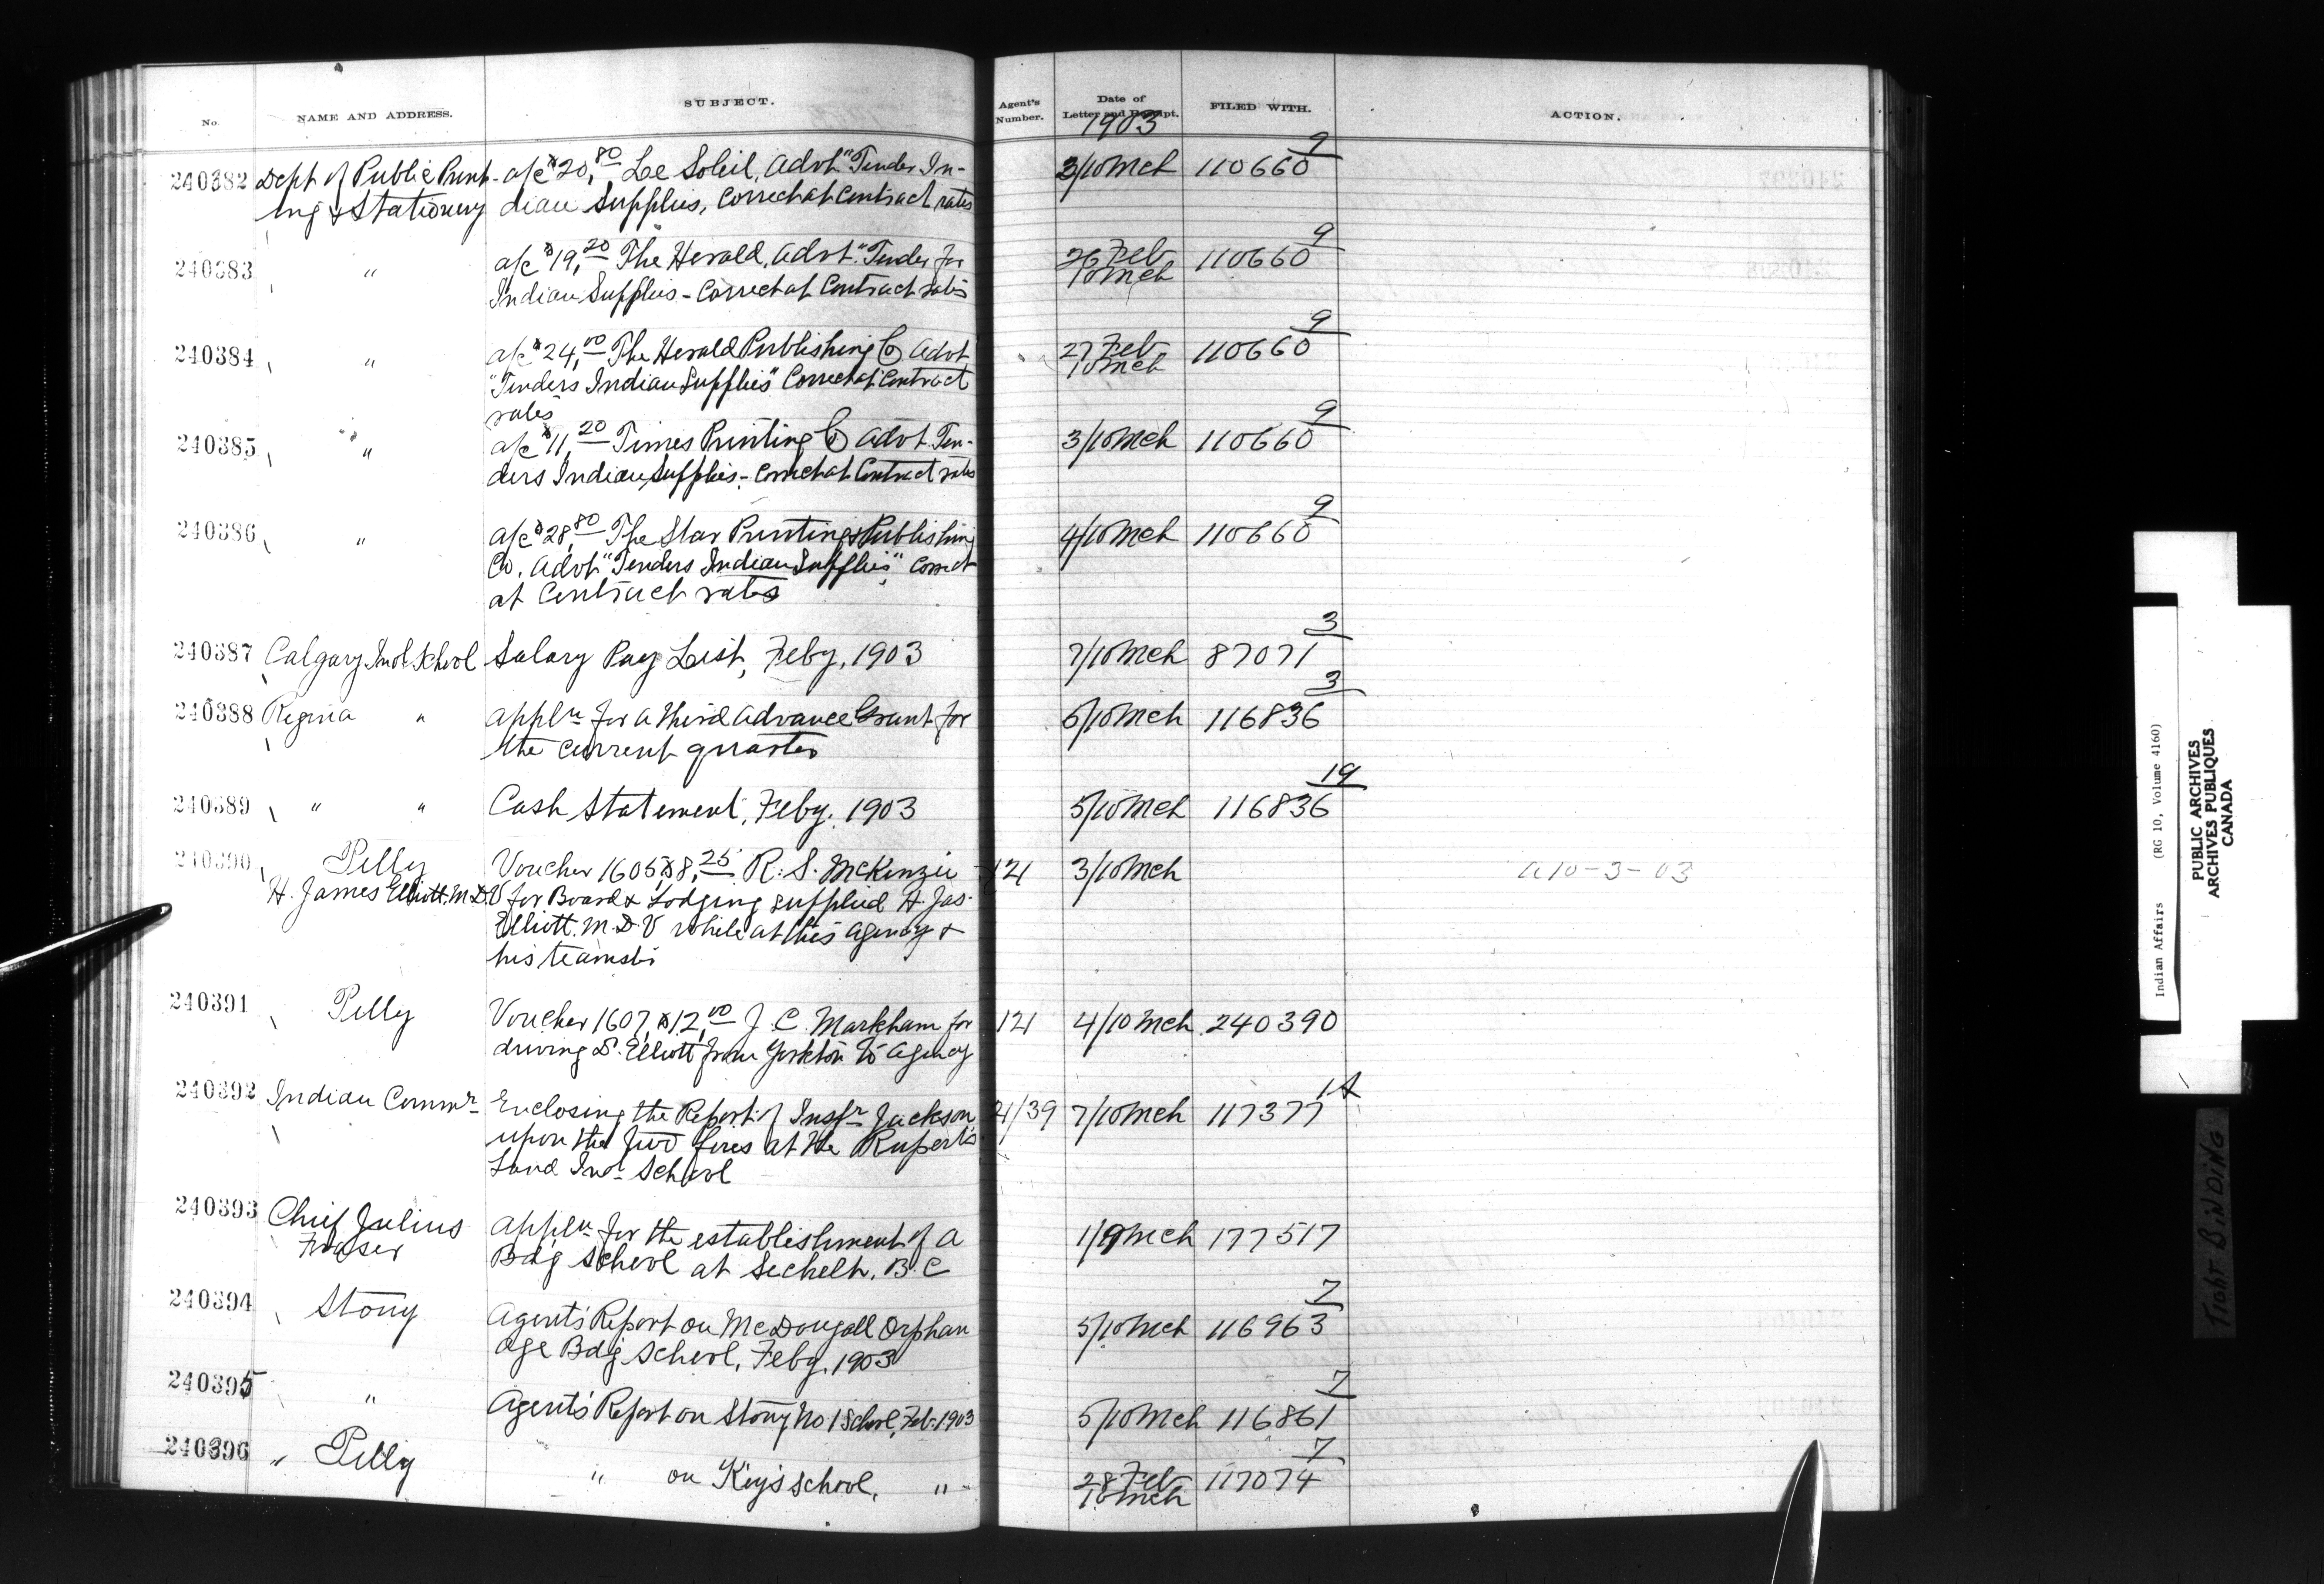 No. NAME AND ADDRESS. SUBJECT. Agent's Number. Date of Letter and Receipt. FILED WITH. ACTION.
1903
240382 Dept of Public Print- a/c $20,80 Le Soleil, Advt "Tender In- 3/10 Mch 110660 9
ing & Stationery dian Supplies, Correct at Contract rates
240383 " a/c $19,20 The Herald, Advt. "Tender for 26 Feb 110660 9
Indian Supplies - Correct at Contract rates 10 Mch
240384 " a/c $24,00 The Herald Publishing Co Advt 27 Feb 110660 9
"Tenders Indian Supplies" Correct at Contract 10 Mch
rates
240385 " a/c $11,20 Times Printing Co Advt Ten- 3/10 Mch 110660 9
ders Indian Supplies - Correct at Contract rates
240386 " a/c $28,80 The Star Printing & Publishing 4/10 Mch 110660 9
Co. Advt "Tenders Indian Supplies" Correct
at Contract rates
240387 Calgary Indl School Salary Pay List, Feby. 1903 7/10 Mch 87071 3
240388 Regina " Appln for a third Advance Grant for 6/10 Mch 116836 3
the current quarter
240389 " " Cash Statement, Feby. 1903 5/10 Mch 116836 19
240390 Pelly Voucher 1605 $8,25 R. S. McKenzie 121 3/10 Mch a 10-3-03
H. James Elliott. M.D.V for Board & Lodging supplied H. Jas.
Elliott. M.D.V while at this Agency &
his teamster
240391 Pelly Voucher 1607, $12,00 J. C. Markham for 121 4/10 Mch 240390
driving Dr. Elliott from Yorkton to Agency
240392 Indian Commr Enclosing the Report of Inspr Jackson 21/39 7/10 Mch 117377 1A
upon the two fires at the Rupert's
Land Indl School
240393 Chief Julius Appln for the establishment of a 1/9 Mch 177517
Fraser Bdg School at Sechelt. B.C
240394 Stony Agents' Report on McDougall Orphan 5/10 Mch 116963 7
age Bdg School, Feby. 1903
240395 " Agents' Report on Stony No 1 School, Feb. 1903 5/10 Mch 116861 7
240396 " Pelly " on Key's School, " 28 Feb 117074 7
10 Mch
Indian Affairs (RG 10, Volume 4160)
PUBLIC ARCHIVES
ARCHIVES PUBLIQUES
CANADA
TIGHT BINDING